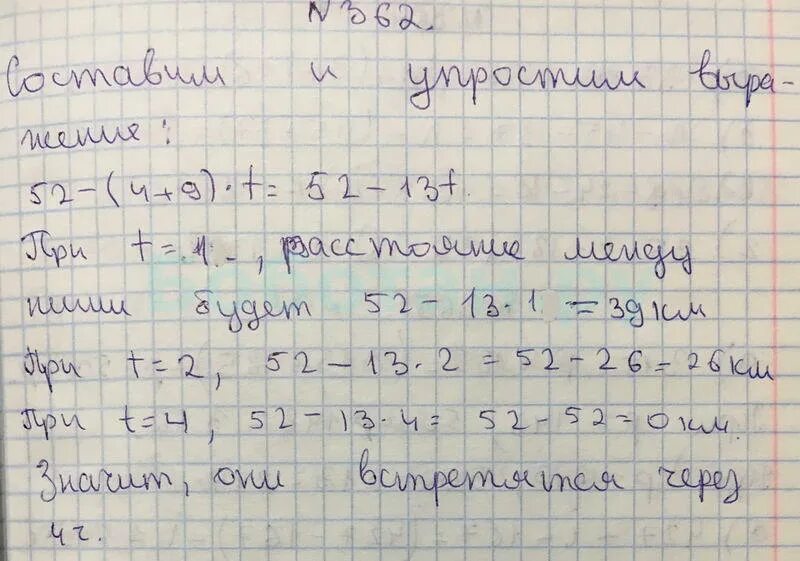 № 362.
Составим и упростим выра-
жение:
52-(4+9)·t= 52-13t.
При t=1, расстояние между
ними будет 52-13·1 = 39 км
При t=2, 52-13·2 = 52-26 = 26 км
При t=4, 52-13·4 = 52-52 = 0 км.
Значит, они встретятся через
4 ч.